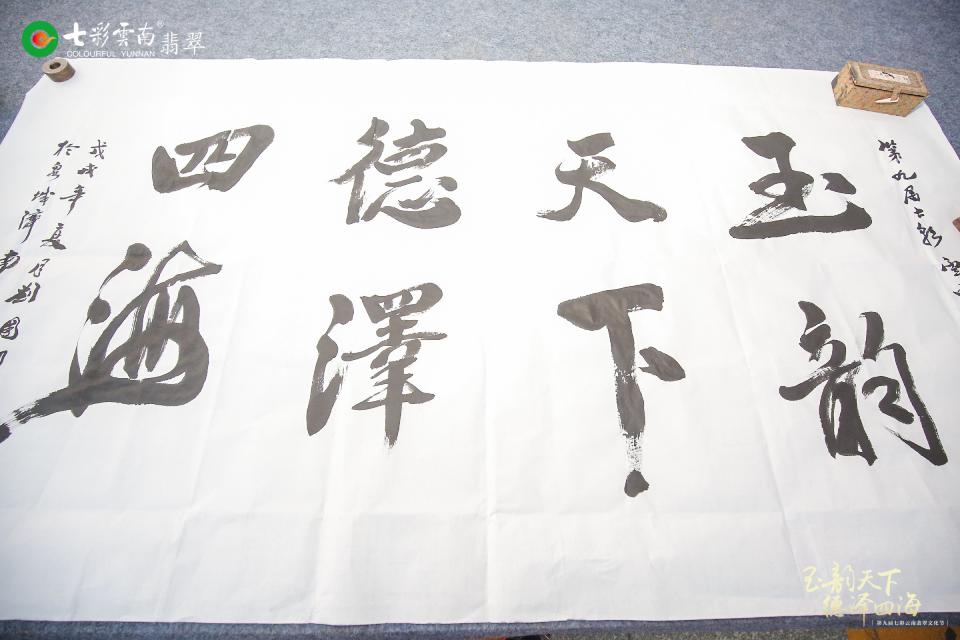 七彩雲南®翡翠
COLOURFUL YUNNAN
第九届七彩
玉韵
天下
德澤
四海
戊戌年夏月
玉韵天下
德泽四海
第九届七彩云南翡翠文化节